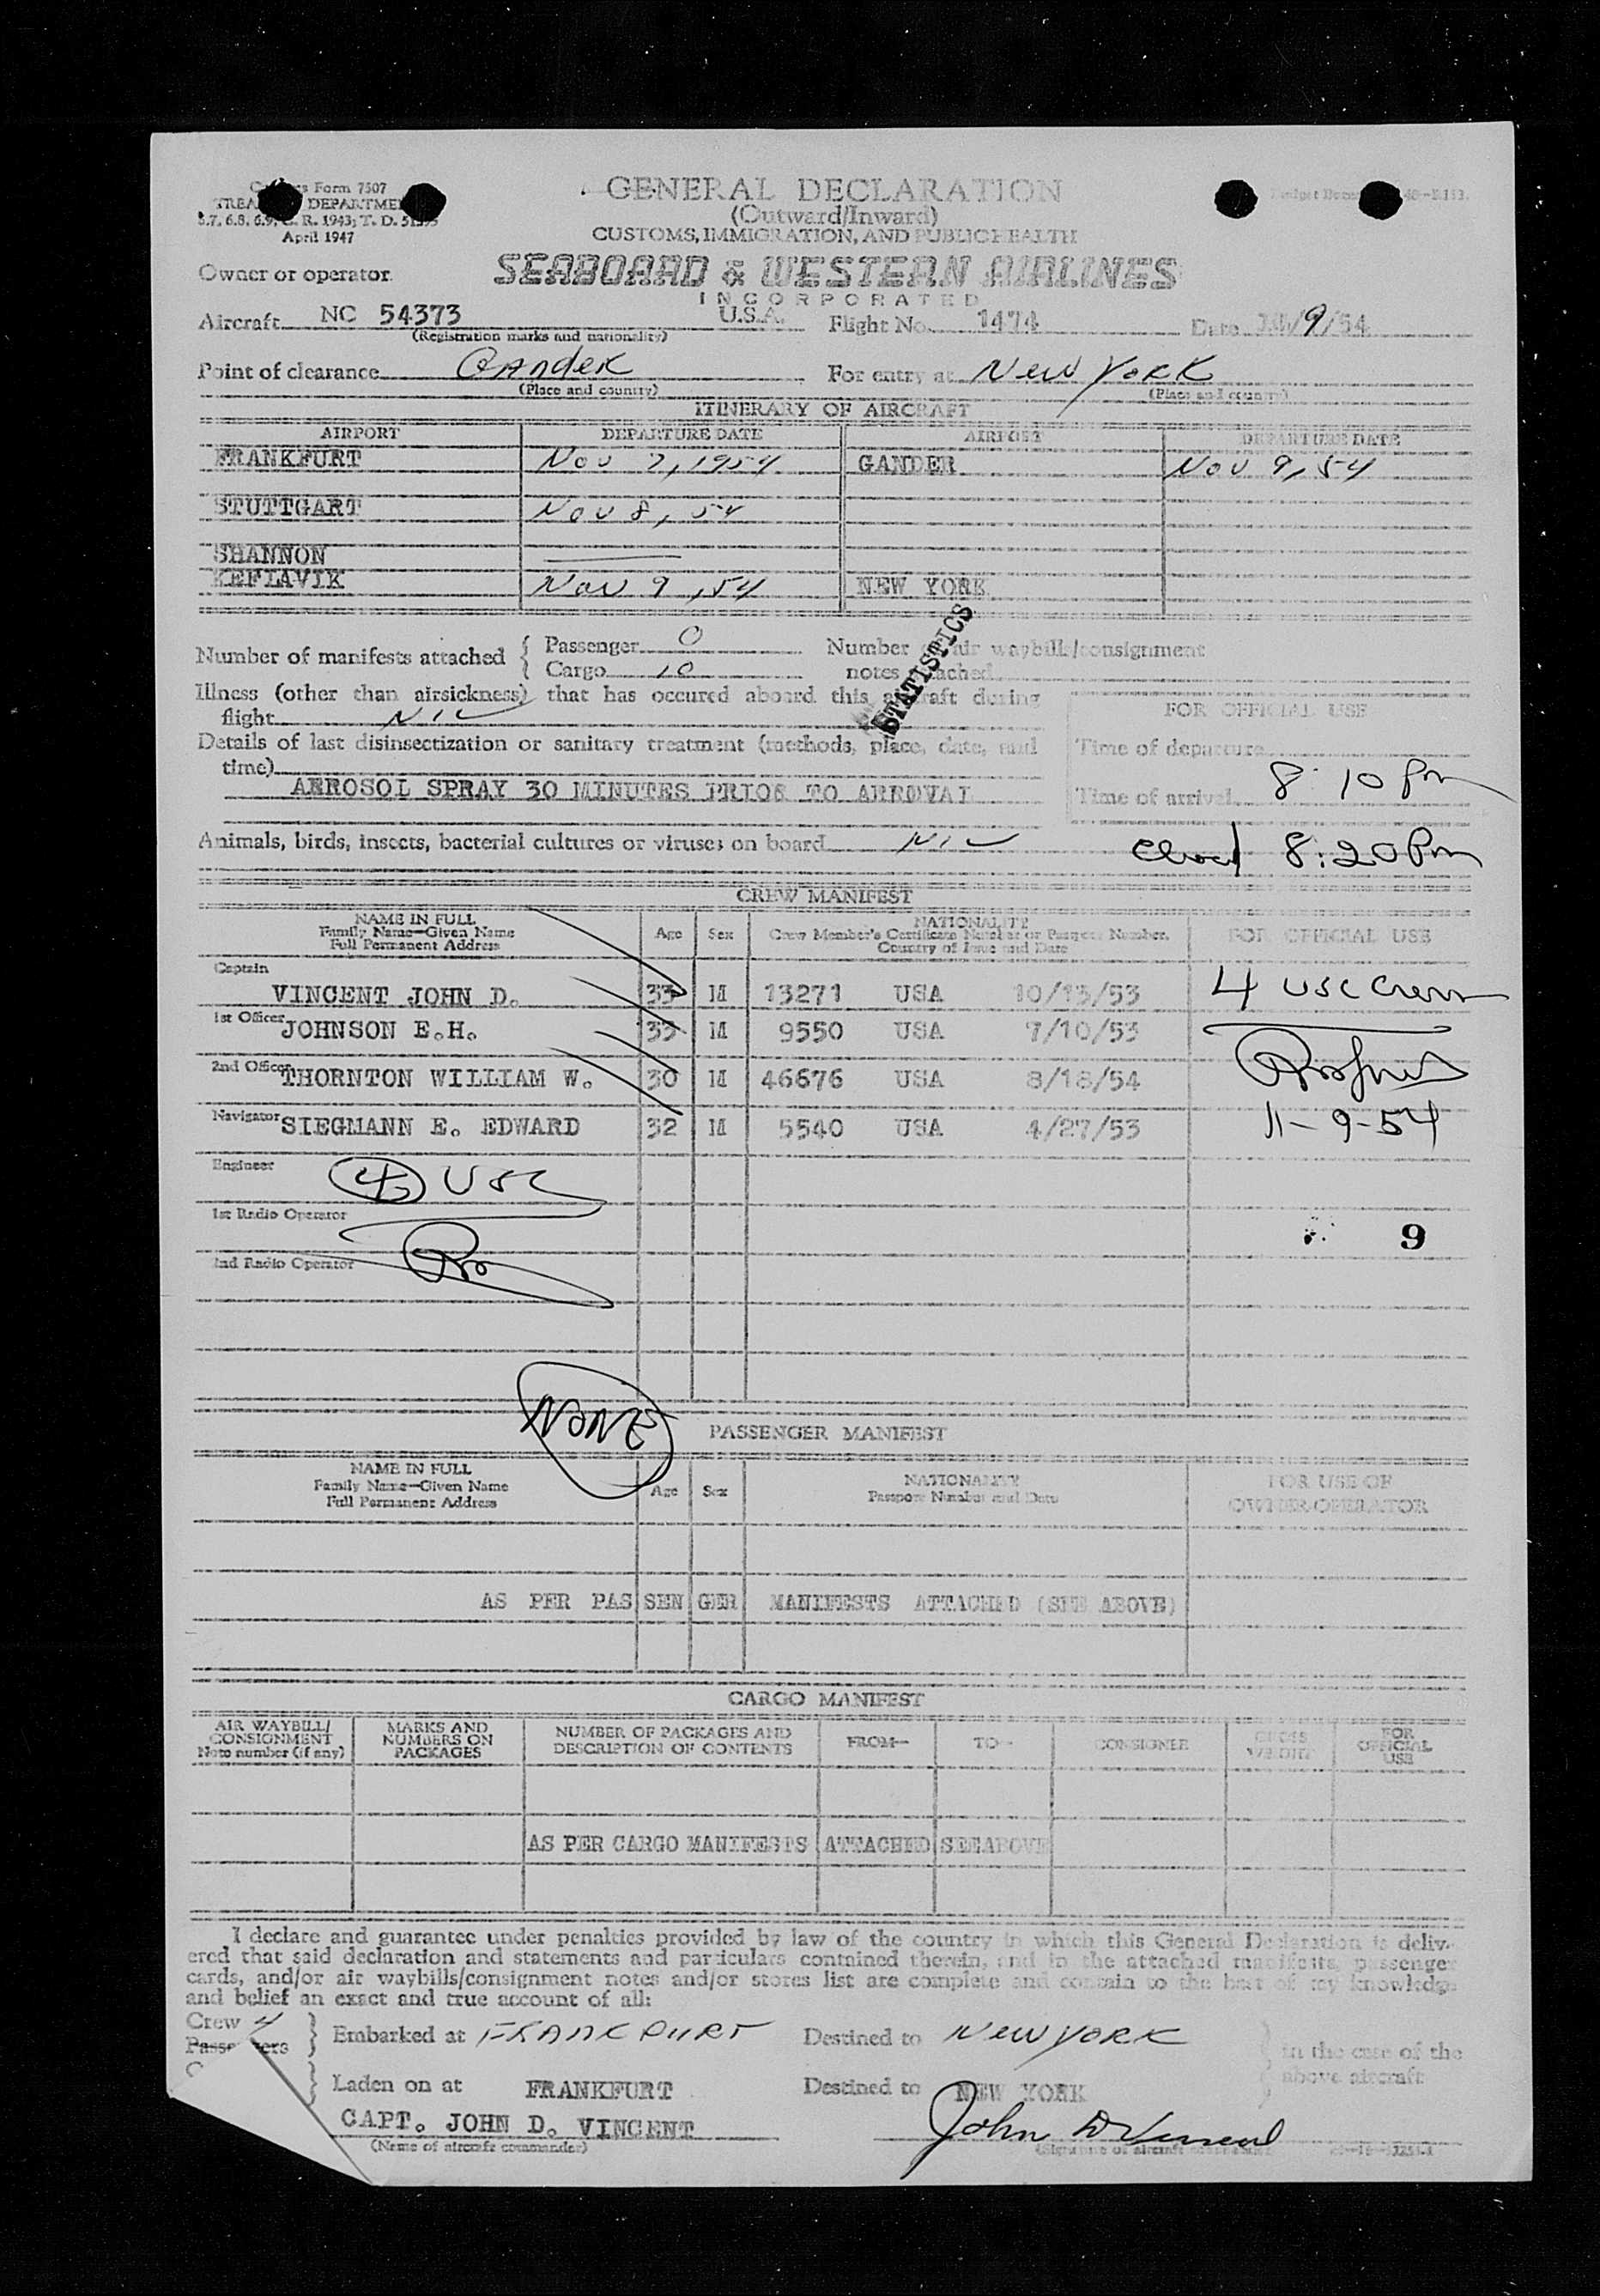 Form 7507
DEPARTMENT
6.7, 6.8, 6.9, C. R. 1943; T. D.
April 1947
GENERAL DECLARATION
(Outward/Inward)
CUSTOMS, IMMIGRATION, AND PUBLIC HEALTH
Owner or operator
SEABOARD & WESTERN AIRLINES
INCORPORATED
Aircraft NC 54373 U.S.A. Flight No. 1474 Date 11/9/54
(Registration marks and nationality)
Point of clearance Gander For entry at New York
(Place and country) (Place and country)
ITINERARY OF AIRCRAFT
AIRPORT DEPARTURE DATE AIRPORT DEPARTURE DATE
FRANKFURT Nov 7, 1954 GANDER Nov 9, 54
STUTTGART Nov 8, 54
SHANNON
KEFLAVIK Nov 9, 54 NEW YORK
Number of manifests attached { Passenger 0 Number air waybills/consignment
Cargo 10 notes attached
STATISTICS
Illness (other than airsickness) that has occured aboard this aircraft during
flight NIL
FOR OFFICIAL USE
Details of last disinsectization or sanitary treatment (methods, place, date, and
time)
Time of departure
AEROSOL SPRAY 30 MINUTES PRIOR TO ARRIVAL
Time of arrival 8:10 Pm
Animals, birds, insects, bacterial cultures or viruses on board NIL
8:20 Pm
CREW MANIFEST
NAME IN FULL
Family Name—Given Name
Full Permanent Address
Age Sex
NATIONALITY
Crew Member's Certificate Number or Passport Number,
Country of Issue and Date
FOR OFFICIAL USE
Captain
VINCENT JOHN D. 33 M 13271 USA 10/13/53 4 USC Crew
1st Officer JOHNSON E.H. 33 M 9550 USA 7/10/53
2nd Officer THORNTON WILLIAM W. 30 M 46676 USA 8/18/54
Navigator SIEGMANN E. EDWARD 32 M 5540 USA 4/27/53 11-9-54
Engineer 4 USC
1st Radio Operator
9
2nd Radio Operator
NONE
PASSENGER MANIFEST
NAME IN FULL
Family Name—Given Name
Full Permanent Address
Age Sex
NATIONALITY
Passport Number and Date
FOR USE OF
OWNER/OPERATOR
AS PER PASSENGER MANIFESTS ATTACHED (SEE ABOVE)
CARGO MANIFEST
AIR WAYBILL/
CONSIGNMENT
Note number (if any)
MARKS AND
NUMBERS ON
PACKAGES
NUMBER OF PACKAGES AND
DESCRIPTION OF CONTENTS
FROM— TO— CONSIGNEE
GROSS
WEIGHT
FOR
OFFICIAL
USE
AS PER CARGO MANIFESTS ATTACHED SEE ABOVE
I declare and guarantee under penalties provided by law of the country in which this General Declaration is deliv-
ered that said declaration and statements and particulars contained therein, and in the attached manifests, passenger
cards, and/or air waybills/consignment notes and/or stores list are complete and contain to the best of my knowledge
and belief an exact and true account of all:
Crew 4 } Embarked at FRANKFURT Destined to NEW YORK
in the case of the
above aircraft
Laden on at FRANKFURT Destined to NEW YORK
CAPT. JOHN D. VINCENT John D Vincent
(Name of aircraft commander) (Signature of aircraft commander)